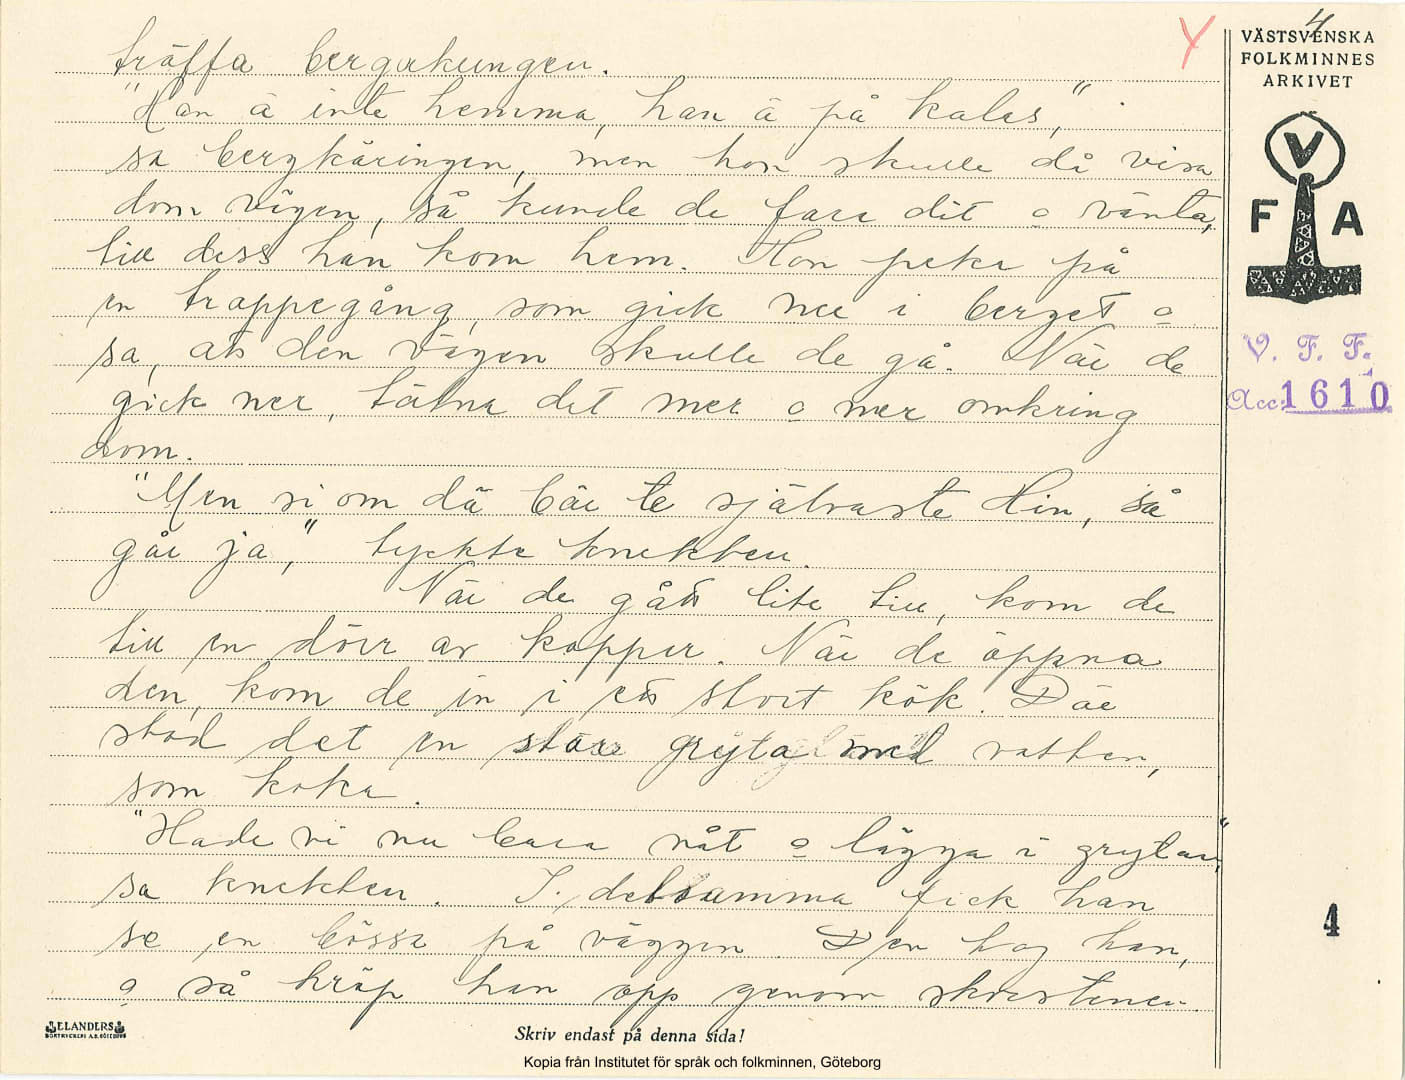 4
VÄSTSVENSKA
FOLKMINNES
ARKIVET
V
F A
V. F. F.
Acc: 1610
träffa bergakungen.
"Han ä inte hemma, han ä på kalas,"
sa bergkäringen, men hon skulle då visa
dom vägen, så kunde de fara dit o vänta,
till dess han kom hem. Hon peka på
en trappegång, som gick ner i berget o
sa, att den vägen skulle de gå. När de
gick ner, tätna det mer o mer omkring
dom.
"Men si om dä bär te självaste Hin, så
går ja," tyckte knekten.
När de gått lite till, kom de
till en dörr av koppar. När de öppna
den, kom de in i ett stort kök. Där
stod det en stor gryta med vatten,
som koka.
"Hade vi nu bara nåt o lägga i grytan,"
sa knekten. I detsamma fick han
se en bössa på väggen. Den tog han,
o så kröp han opp genom skorstenen
4
ELANDERS
BOKTRYCKERI A.B. GÖTEBORG
Skriv endast på denna sida!
Kopia från Institutet för språk och folkminnen, Göteborg